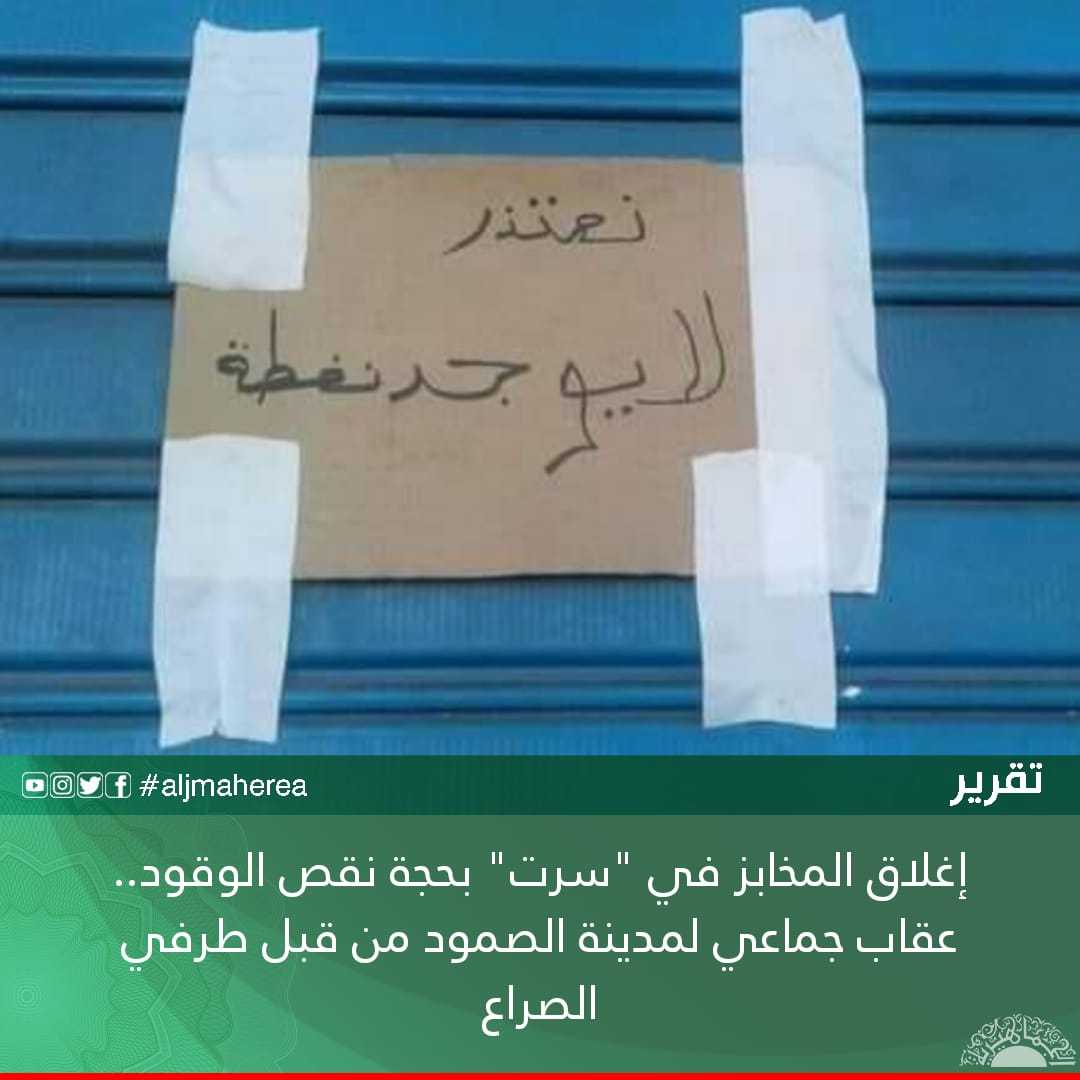 نعتذر
لا يوجد نفطة
تقرير
#aljmaherea
إغلاق المخابز في "سرت" بحجة نقص الوقود..
عقاب جماعي لمدينة الصمود من قبل طرفي
الصراع